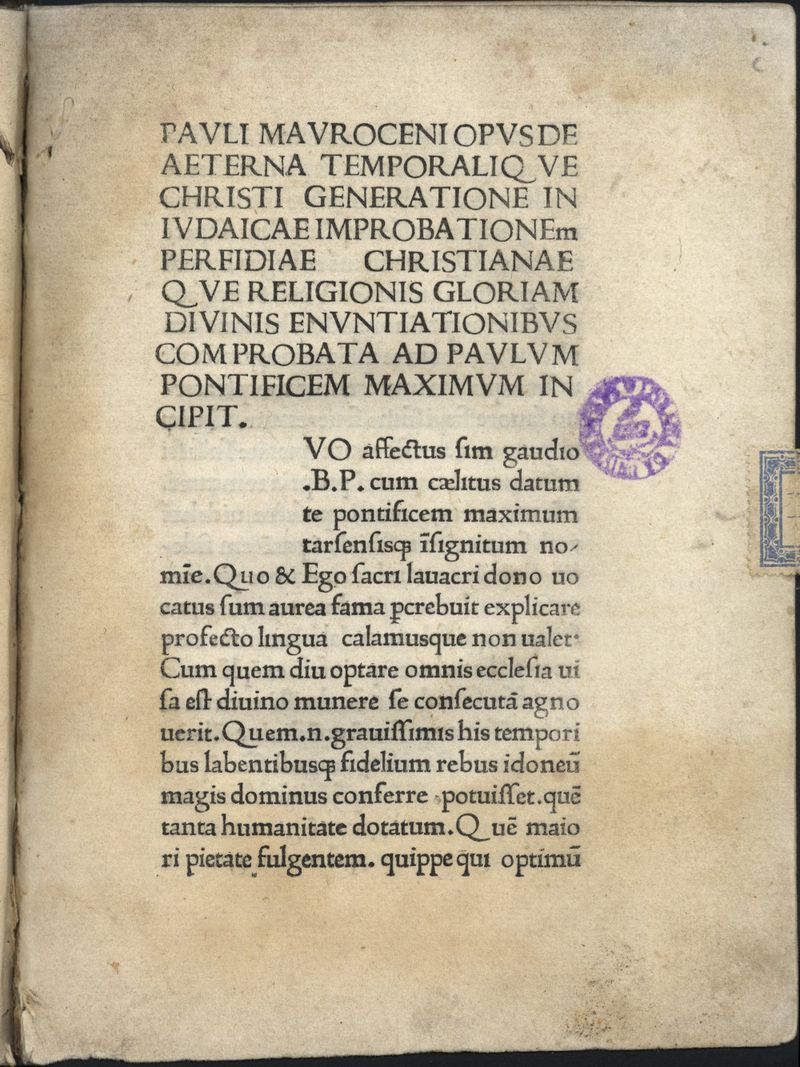 PAVLI MAVROCENI OPVS DE
AETERNA TEMPORALIQVE
CHRISTI GENERATIONE IN
IVDAICAE IMPROBATIONEm
PERFIDIAE CHRISTIANAE
QVE RELIGIONIS GLORIAM
DIVINIS ENVNTIATIONIBVS
COMPROBATA AD PAVLVM
PONTIFICEM MAXIMVM IN
CIPIT.
VO affectus ſim gaudio
.B.P. cum cælitus datum
te pontificem maximum
tarſenſisqꝫ īſignitum no⸗
mīe. Quo & Ego ſacri lauacri dono uo
catus ſum aurea fama pcrebuit explicare
profecto lingua calamusque non ualet·
Cum quem diu optare omnis eccleſia ui
ſa eſt diuino munere ſe conſecutā agno
uerit. Quem.n.grauiſſimis his tempori
bus labentibusqꝫ fidelium rebus idoneū
magis dominus conferre potuiſſet.quē
tanta humanitate dotatum. Quē maio
ri pietate fulgentem. quippe qui optimū